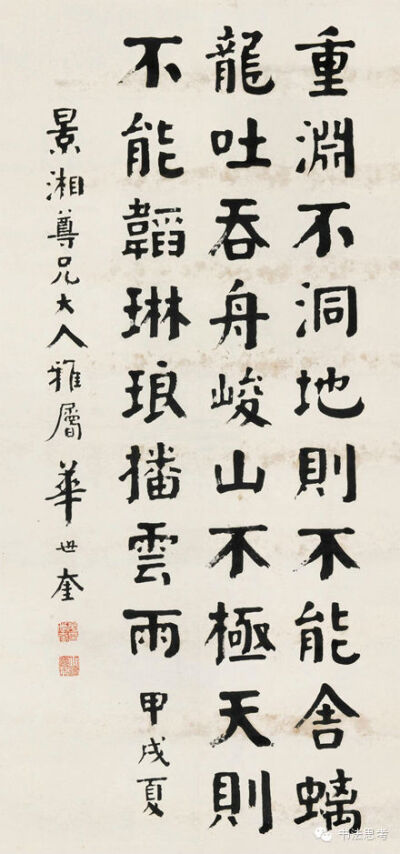 重淵不洞地則不能舍螭
龍吐吞舟峻山不極天則
不能韜琳琅播雲雨 甲戌夏
景湘尊兄大人雅屬 華世奎
书法思考